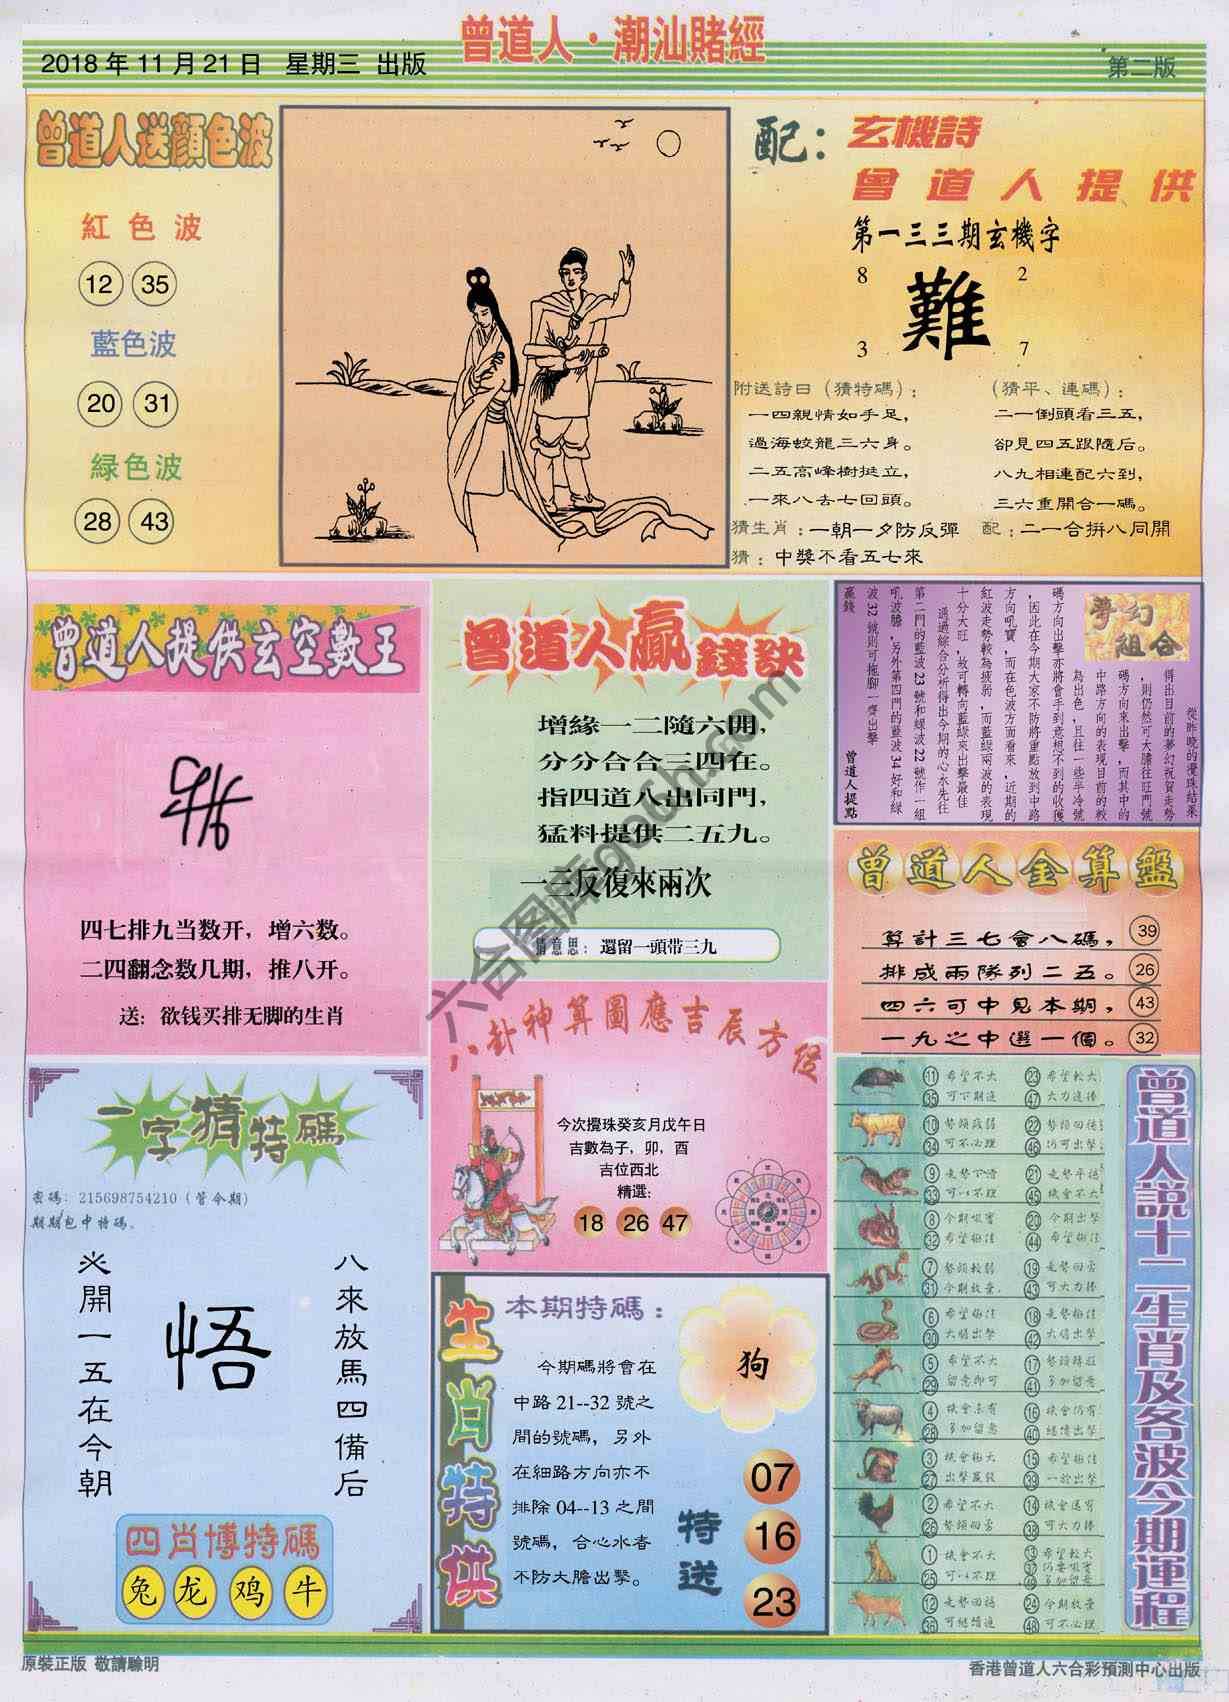 曾道人·潮汕賭經
2018年11月21日 星期三 出版
第二版
曾道人送顏色波
紅色波
12 35
藍色波
20 31
緑色波
28 43
配：
玄機詩
曾道人提供
第一三三期玄機字
8 2
難
3 7
附送詩曰（猜特碼）：
一四親情如手足，
過海蛟龍三六身。
二五高峰樹挺立，
一來八去七回頭。
（猜平、連碼）：
二一倒頭看三五，
卻見四五跟隨后。
八九相連配六到，
三六重開合一碼。
猜生肖：一朝一夕防反彈
配：二一合拚八同開
猜：中獎不看五七來
曾道人提供玄空數王
四七排九当数开，增六数。
二四翻念数几期，推八开。
送：欲钱买排无脚的生肖
曾道人贏錢訣
增緣一二隨六開，
分分合合三四在。
指四道八出同門，
猛料提供二五九。
一三反復來兩次
猜意思：還留一頭带三九
夢幻組合
從昨晚的攪珠結果
得出目前的夢幻祝賀走勢
，則仍然可大膽往旺門號
碼方向來出擊，而其中的
中路方向的表現目前的較
為出色，且往一些半冷號
碼方向出擊亦將會手到意想不到的收獲
，因此在今期大家不防將重點放到中路
方向吼寶，而在色波方面看來，近期的
紅波走勢較為疲弱，而藍綠兩波的表現
十分大旺，故可轉向藍綠來出擊最佳
通過綜合分析得出今期的心水先往
第二門的藍波23號和緑波22號作一組
吼波膽，另外第四門的藍波34好和緑
波32號則可拖腳一齊出擊
贏錢
曾道人提點
曾道人金算盤
算計三七會八碼， 39
排成兩隊列二五。 26
四六可中見本期， 43
一九之中選一個。 32
八卦神算圖應吉辰方位
今次攪珠癸亥月戊午日
吉數為子，卯，酉
吉位西北
精選：
18 26 47
一字猜特碼
密碼：215698754210（管今期）
期期包中特碼。
必開一五在今朝
悟
八來放馬四備后
四肖博特碼
兔 龙 鸡 牛
生肖特供
本期特碼：
今期碼將會在
中路21--32號之
間的號碼，另外
在細路方向亦不
排除04--13之間
號碼，合心水者
不防大膽出擊。
狗
特送
07
16
23
曾道人説十二生肖及各波今期運程
11 希望不大 23 希望較大
35 可下期追 47 大力追捧
10 勢頭疲弱 22
34 可不必理 46 仍可出擊
9 走勢下滑 21 走勢平穩
33 可以不理 45 機會不大
8 今期吸寶 20 今期出擊
32 希望極佳 44 希望極佳
7 勢頭較弱 19 走勢回勇
31 今期放棄 43 可大力捧
6 希望極佳 18 走勢極佳
30 大膽出擊 42 大膽出擊
5 希望不大 17
29 留意即可 41 多加留意
4 機會未有 16 機會仍有
28 多加留意 40 繼續出擊
3 機會極大 15 希望極佳
27 39 一於出擊
2 希望不大 14
26 勢頭回勇 38 可大力捧
1 機會不大 13 希望較大
25 可以不理 37 49 多加留意
12 走勢回穩 24 今期放棄
36 可繼續追 48 可不必理
原裝正版 敬請驗明
香港曾道人六合彩預測中心出版
六合图库gooch.com